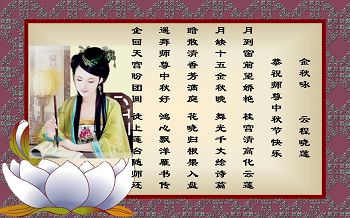 金秋咏 云程晓莲
恭祝师尊中秋节快乐
月到窗前望娇艳 桂宫清高化云莲
月缺十五金秋晚 舞光千丈绘诗篇
暗散清香芳满庭 花晓归根果入盘
遥拜师尊中秋好 鸿心飘洋雁书传
金回天宫盼团圆 徒上莲台随师还